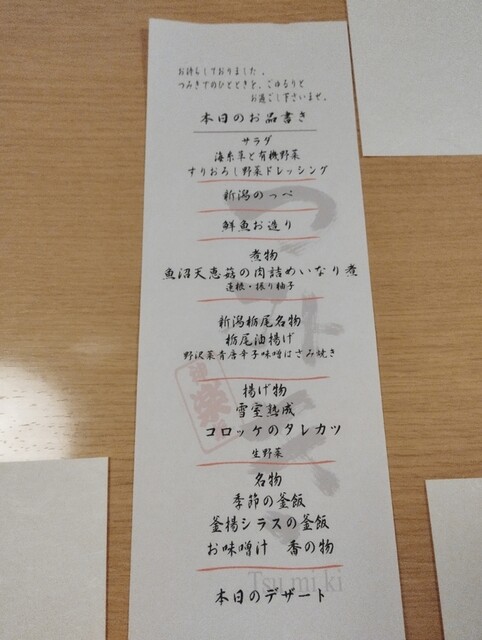 お待ちしておりました。
つみきでのひとときを、ごゆるりと
お過ごし下さいませ。
本日のお品書き
サラダ
海糸羊と有機野菜
すりおろし野菜ドレッシング
新潟のっぺ
鮮魚お造り
煮物
魚沼天恵菇の肉詰めいなり煮
蓮根・振り柚子
新潟栃尾名物
栃尾油揚げ
野沢菜青唐辛子味噌はさみ焼き
揚げ物
雪室熟成
コロッケのタレカツ
生野菜
名物
季節の釜飯
釜揚シラスの釜飯
お味噌汁 香の物
Tsu mi ki
本日のデザート